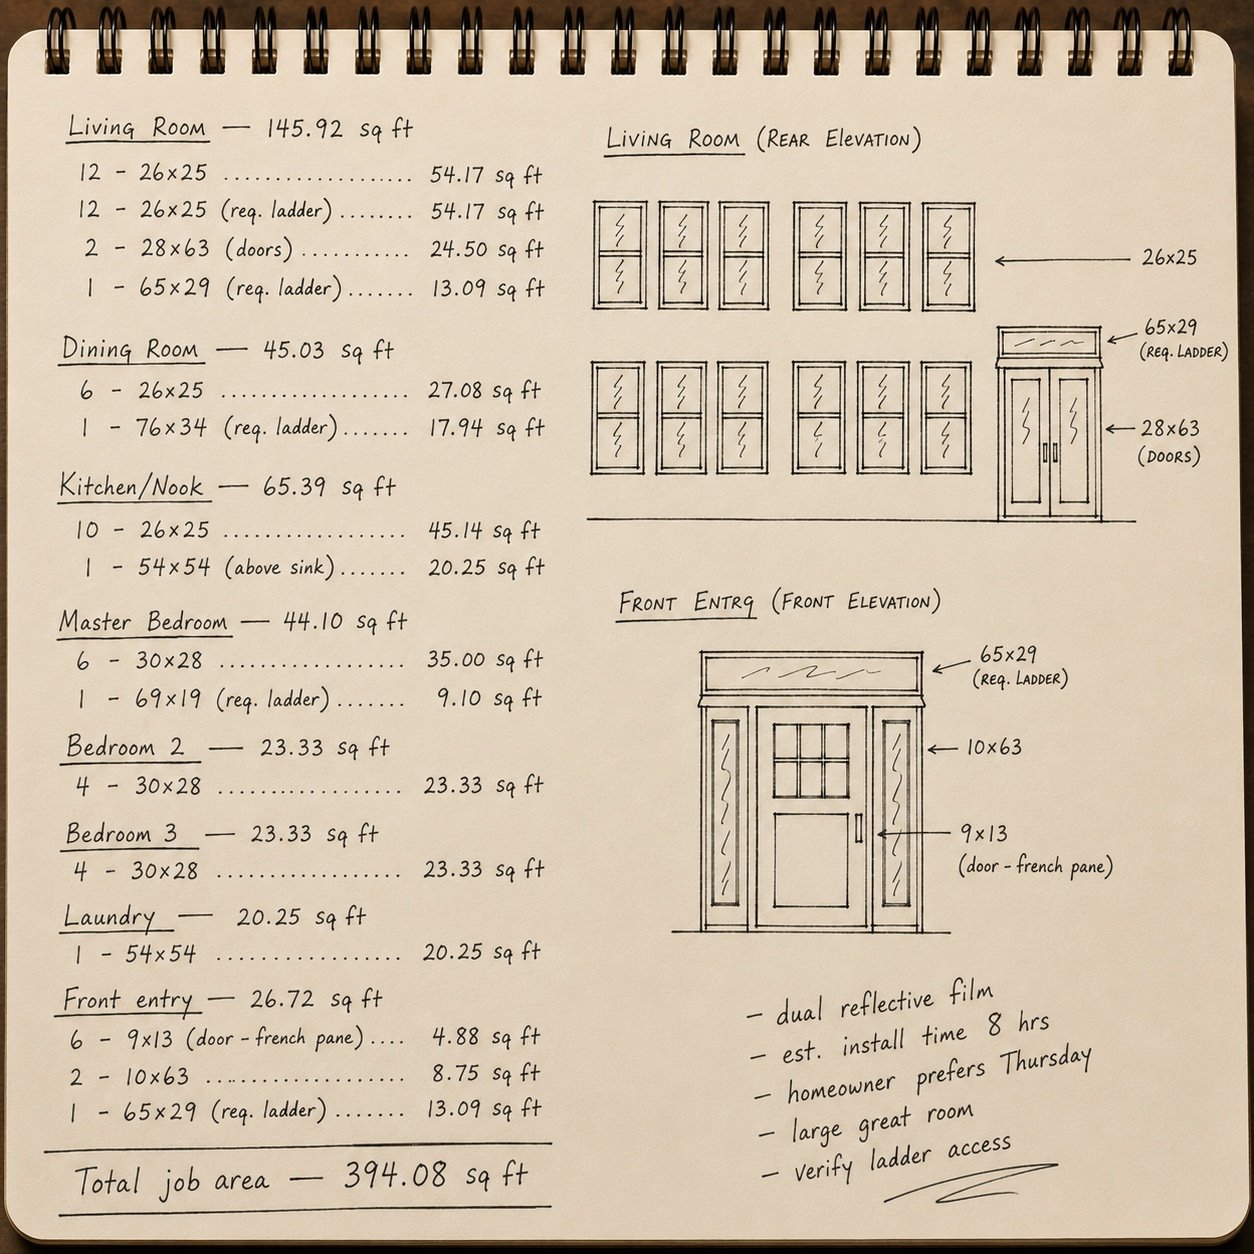 Living Room — 145.92 sq ft
12 - 26x25 .................... 54.17 sq ft
12 - 26x25 (req. ladder) ........ 54.17 sq ft
2 - 28x63 (doors) ........... 24.50 sq ft
1 - 65x29 (req. ladder)....... 13.09 sq ft
Dining Room — 45.03 sq ft
6 - 26x25 .................... 27.08 sq ft
1 - 76x34 (req. ladder)....... 17.94 sq ft
Kitchen/Nook — 65.39 sq ft
10 - 26x25 .................. 45.14 sq ft
1 - 54x54 (above sink)....... 20.25 sq ft
Master Bedroom — 44.10 sq ft
6 - 30x28 .................. 35.00 sq ft
1 - 69x19 (req. ladder) ....... 9.10 sq ft
Bedroom 2 — 23.33 sq ft
4 - 30x28 .................. 23.33 sq ft
Bedroom 3 — 23.33 sq ft
4 - 30x28 .................. 23.33 sq ft
Laundry — 20.25 sq ft
1 - 54x54 .................. 20.25 sq ft
Front entry — 26.72 sq ft
6 - 9x13 (door - french pane) .... 4.88 sq ft
2 - 10x63 .................... 8.75 sq ft
1 - 65x29 (req. ladder) ....... 13.09 sq ft
Total job area — 394.08 sq ft
Living Room (Rear Elevation)
26x25
65x29
(Req. Ladder)
28x63
(Doors)
Front Entrq (Front Elevation)
65x29
(Req. Ladder)
10x63
9x13
(door - french pane)
- dual reflective film
- est. install time 8 hrs
- homeowner prefers Thursday
- large great room
- verify ladder access